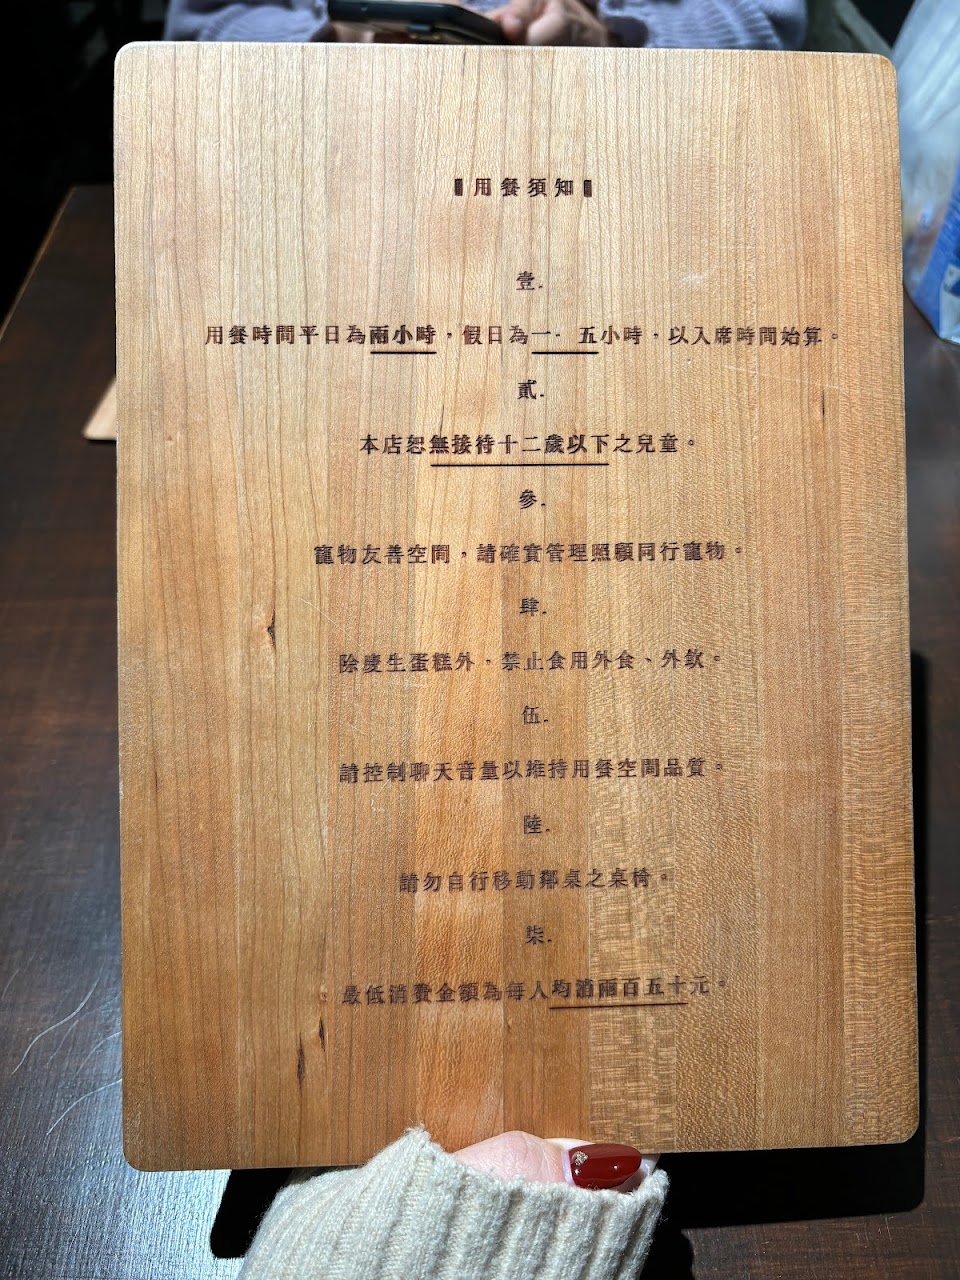 【用餐須知】
壹.
用餐時間平日為兩小時，假日為一．五小時，以入席時間始算。
貳.
本店恕無接待十二歲以下之兒童。
參.
寵物友善空間，請確實管理照顧同行寵物。
肆.
除慶生蛋糕外，禁止食用外食、外飲。
伍.
請控制聊天音量以維持用餐空間品質。
陸.
請勿自行移動鄰桌之桌椅。
柒.
最低消費金額為每人均消兩百五十元。